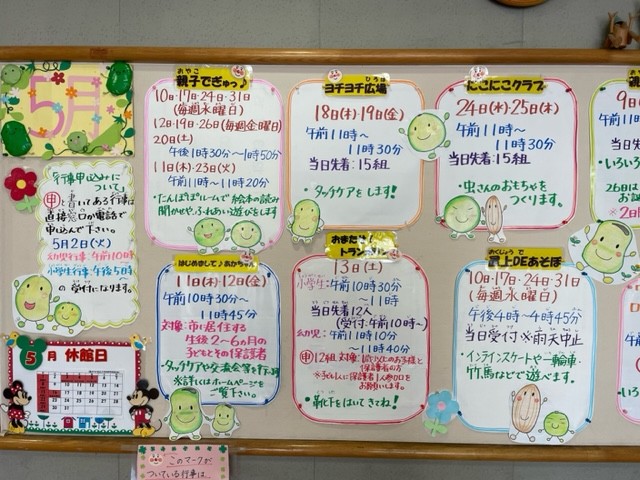 5月
行事申込みに
ついて
申と書いてある行事は
直接窓口か電話で
申し込んで下さい。
5月2日(火)
幼児行事:午前10時
小学生行事:午後5時
の受付になります。
5月 休館日
このマークが
ついている行事は…
おやこ
親子でぎゅっ♪
10日・17日・24日・31日
(毎週水曜日)
12日・19日・26日(毎週金曜日)
20日(土)
午後1時30分〜1時50分
11日(木)・23日(火)
午前11時〜11時20分
・たんぽぽルームで絵本の読み
聞かせや、ふれあい遊びをします
ひろば
ヨチヨチ広場
18日(木)・19日(金)
午前11時〜
11時30分
当日先着:15組
・タッチケアをします!
にこにこクラブ
24日(水)・25日(木)
午前11時〜
11時30分
当日先着:15組
・虫さんのおもちゃを
つくります。
はじめまして♪あかちゃん
11日(木)・12日(金)
午前10時30分〜
11時45分
対象:市に居住する
生後2〜6カ月の
子どもとその保護者
・タッチケアや交流会等を行う
※詳しくはホームページを
ご覧下さい。
おまたせ!
トランポリン
13日(土)
小学生:午前10時30分
〜11時
当日先着12人
(受付:午前10時〜)
幼児:午前11時10分
〜11時40分
申12組 対象:
保護者の方
お願いします。
・靴下をはいてきてね!
おくじょう で
屋上DEあそぼ
10日・17日・24日・31日
(毎週水曜日)
午後4時〜4時45分
当日受付 ※雨天中止
・インラインスケートや一輪車・
竹馬などで遊べます。
9日
午前
当日
・いろい
26日は
お誕
※2日